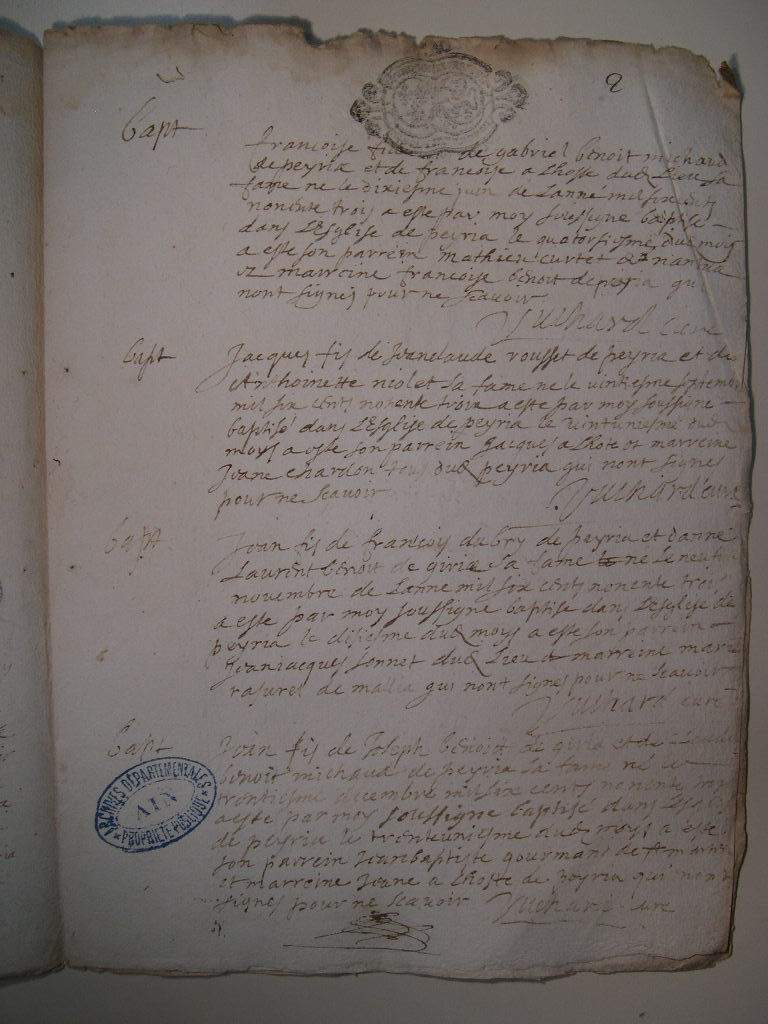 2
Bapt
francoise fille de gabriel benoit michaud
de peyria et de francoise a Lhoste dud Lieu sa
fame ne le dixiesme juin de Lanné mil six cents
nonente trois a este par moy soussigne baptise
dans LEsglise de peyria le quatorsisme dud mois
a este son parrein mathieu curtet de nantua
et marreine francoise benoit de peyria qui
nont signés pour ne scavoir
Vuchard cure
Bapt
Jacques fis de Jeanclaude rousset de peyria et de
Anthoinette niolet sa fame ne le vintiesme septembre
mil six cents nonente trois a este par moy soussigne
baptisé dans LEsglise de peyria le vintunisme dud
moys a este son parrein Jacques a Lhote et marreine
Jeane chardon tous dud peyria qui nont signes
pour ne scavoir
Vuchard cure
Bapt
Jean fis de francoy dubry de peyria et danne
Laurent benoit de giria sa fame ne le neuf
novembre de Lanne mil six cents nonente trois
a este par moy soussigne baptise dans LEsglise de
peyria le disiesme dud moys a este son parrein
Jeanjacques sonnet dud Lieu et marreine marie
rasurel de mallia qui nont signes pour ne scavoir
Vuchard cure
Bapt
Jean fis de Joseph benoit de giria et de
benoit michaud de peyria sa fame né le
trentiesme decembre mil six cents nonente trois
a este par moy soussigne baptisé dans LEsglise
de peyria le trenteuniesme dud moys a este
son parrein Jeanbaptiste gourmant de st martin
et marreine Jeane a Lhoste de peyria qui nont
signes pour ne scavoir Vuchard cure
ARCHIVES DÉPARTEMENTALES
AIN
PROPRIÉTÉ PUBLIQUE